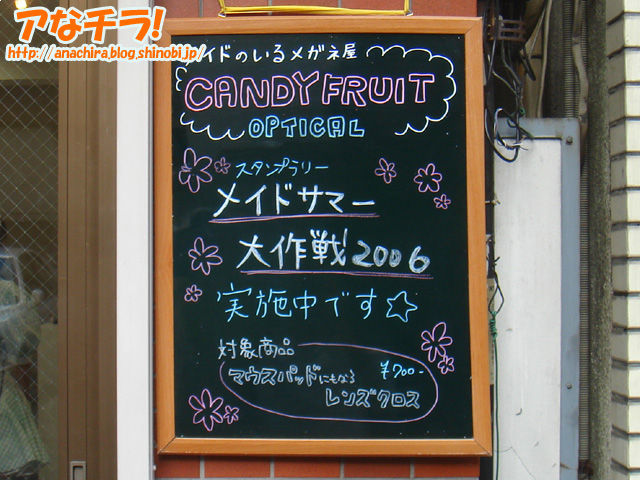 アなチラ!
http://anachira.blog.shinobi.jp/
メイドのいるメガネ屋
CANDY FRUIT
OPTICAL
スタンプラリー
メイドサマー
大作戦2006
実施中です☆
対象商品
マウスパッドにもなる ¥700-
レンズクロス